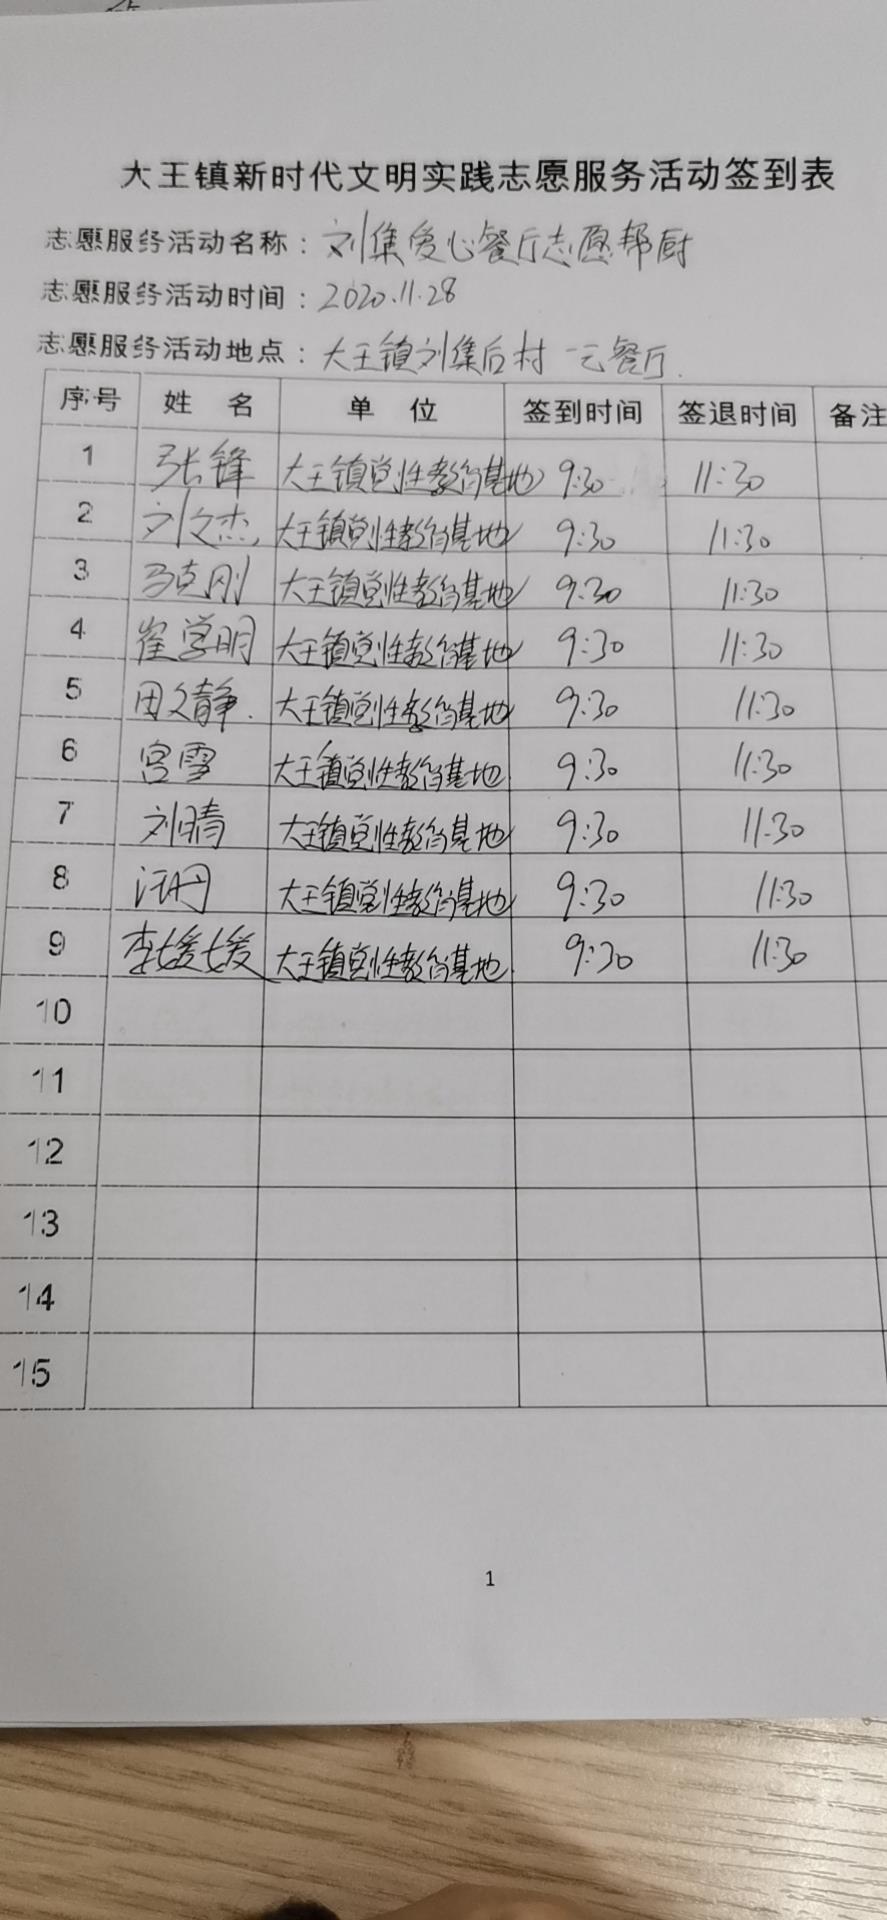 大王镇新时代文明实践志愿服务活动签到表
志愿服务活动名称：刘集爱心餐厅志愿帮厨
志愿服务活动时间：2020.11.28
志愿服务活动地点：大王镇刘集后村一元餐厅.
序号 姓 名 单 位 签到时间 签退时间 备注
1 张锋 大王镇党性教育基地 9:30 11:30
2 刘文杰 大王镇党性教育基地 9:30 11:30
3 马克刚 大王镇党性教育基地 9:30 11:30
4 崔学明 大王镇党性教育基地 9:30 11:30
5 田文静 大王镇党性教育基地 9:30 11:30
6 宫雪 大王镇党性教育基地 9:30 11:30
7 刘晴 大王镇党性教育基地 9:30 11:30
8 汪丹 大王镇党性教育基地 9:30 11:30
9 李媛媛 大王镇党性教育基地 9:30 11:30
10
11
12
13
14
15
1